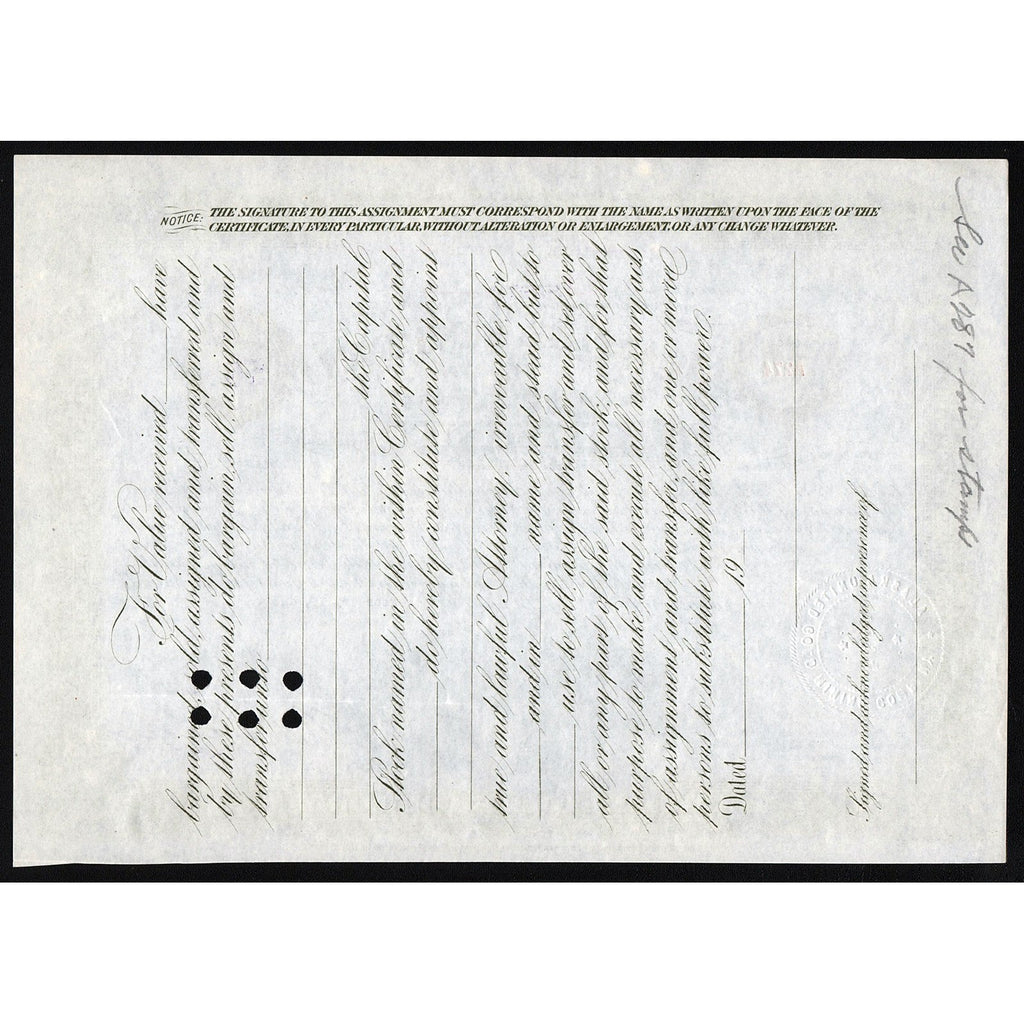 NOTICE: THE SIGNATURE TO THIS ASSIGNMENT MUST CORRESPOND WITH THE NAME AS WRITTEN UPON THE FACE OF THE
CERTIFICATE, IN EVERY PARTICULAR, WITHOUT ALTERATION OR ENLARGEMENT, OR ANY CHANGE WHATEVER.
For Value received have
bargained, sold, assigned and transferred and
by these presents do bargain, sell, assign and
transfer unto
the Capital
Stock named in the within Certificate and
do hereby constitute and appoint
true and lawful Attorney, irrevocable, for
and in name and stead but to
use to sell, assign, transfer and set over
all or any part of the said stock, and for that
purpose to make and execute all necessary acts
of assignment and transfer, and one or more
persons to substitute with like full power.
Dated 19
Signed and acknowledged in presence of
See A for stamps